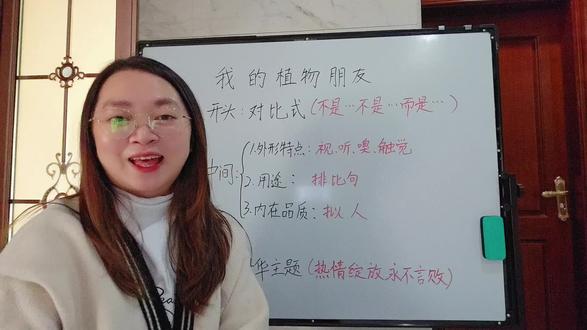 我的植物朋友
开头:对比式(不是…不是…而是…)
中间:
1.外形特点:视、听、嗅、触觉
2.用途:排比句
3.内在品质:拟人
华主题(热情绽放 永不言败)